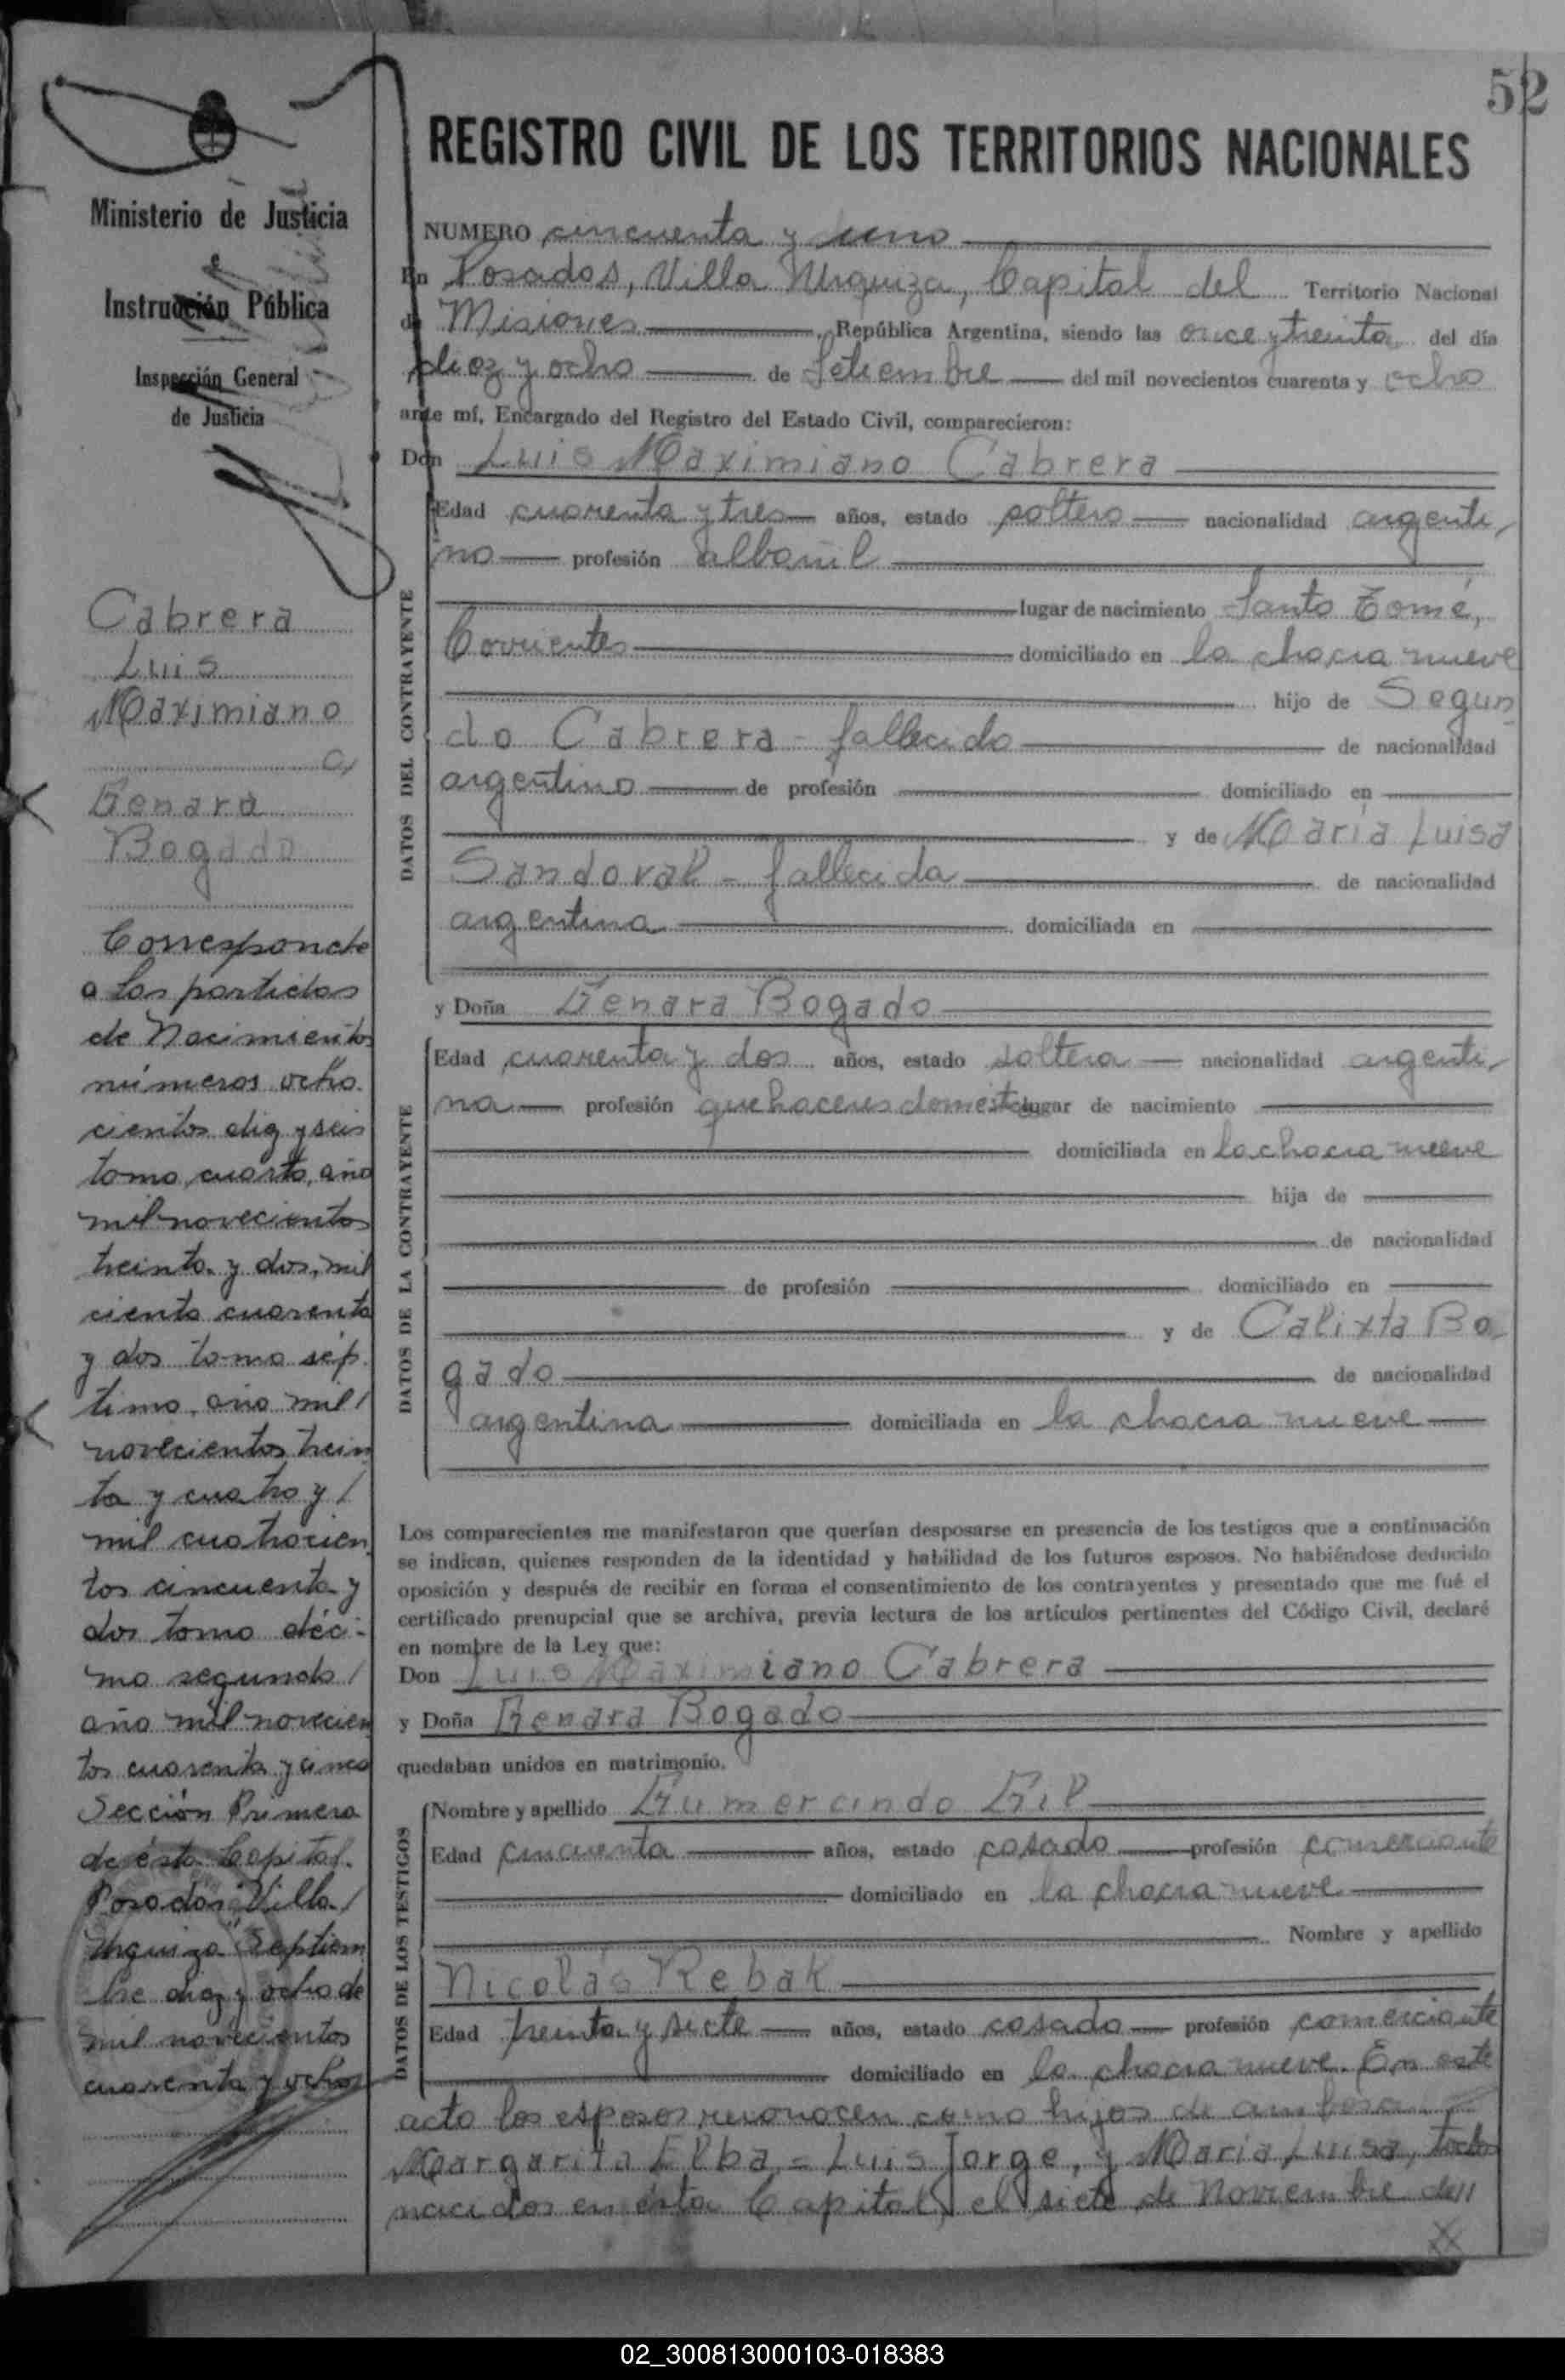 52
REGISTRO CIVIL DE LOS TERRITORIOS NACIONALES
Ministerio de Justicia
e
Instrucción Pública
Inspección General
de Justicia
Cabrera
Luis
Maximiano
Genara
Bogado
Corresponde
a las partidas
de Nacimientos
números ocho
cientos diez y seis
tomo cuarto, año
mil novecientos
treinta y dos, mil
ciento cuarenta
y dos tomo sép
timo, año mil/
novecientos trein
ta y cuatro y/
mil cuatrocien
tos cincuenta y
dos tomo déci-
mo segundo/
año mil novecien
tos cuarenta y cinco
Sección Primera
de ésta Capital.
Posadas, Villa/
Urquiza Septiem
bre diez y ocho de
mil novecientos
cuarenta y ocho
NUMERO cincuenta y uno
En Posadas, Villa Urquiza, Capital del Territorio Nacional
de Misiones, República Argentina, siendo las once y treinta del día
diez y ocho de Setiembre del mil novecientos cuarenta y ocho
ante mí, Encargado del Registro del Estado Civil, comparecieron:
Don Luis Maximiano Cabrera
DATOS DEL CONTRAYENTE
Edad cuarenta y tres años, estado soltero nacionalidad argenti
no profesión albañil
lugar de nacimiento Santo Tomé,
Corrientes domiciliado en la chacra nueve
hijo de Segun
do Cabrera - fallecido de nacionalidad
argentino de profesión domiciliado en
y de María Luisa
Sandoval - fallecida de nacionalidad
argentina domiciliada en
y Doña Genara Bogado
DATOS DE LA CONTRAYENTE
Edad cuarenta y dos años, estado soltera nacionalidad argenti
na profesión quehaceres domést lugar de nacimiento
domiciliada en la chacra nueve
hija de
de nacionalidad
de profesión domiciliado en
y de Calixta Bo
gado de nacionalidad
argentina domiciliada en la chacra nueve
Los comparecientes me manifestaron que querían desposarse en presencia de los testigos que a continuación
se indican, quienes responden de la identidad y habilidad de los futuros esposos. No habiéndose deducido
oposición y después de recibir en forma el consentimiento de los contrayentes y presentado que me fué el
certificado prenupcial que se archiva, previa lectura de los artículos pertinentes del Código Civil, declaré
en nombre de la Ley que:
Don Luis Maximiano Cabrera
y Doña Genara Bogado
quedaban unidos en matrimonio.
DATOS DE LOS TESTIGOS
Nombre y apellido Gumercindo Gil
Edad cincuenta años, estado casado profesión comerciante
domiciliado en la chacra nueve
Nombre y apellido
Nicolás Rebak
Edad treinta y siete años, estado casado profesión comerciante
domiciliado en la chacra nueve. En este
acto los esposos reconocen como hijos de ambos a
Margarita Elba = Luis Jorge, y María Luisa, todos
nacidos en ésta Capital, el siete de Noviembre del
02_300813000103-018383